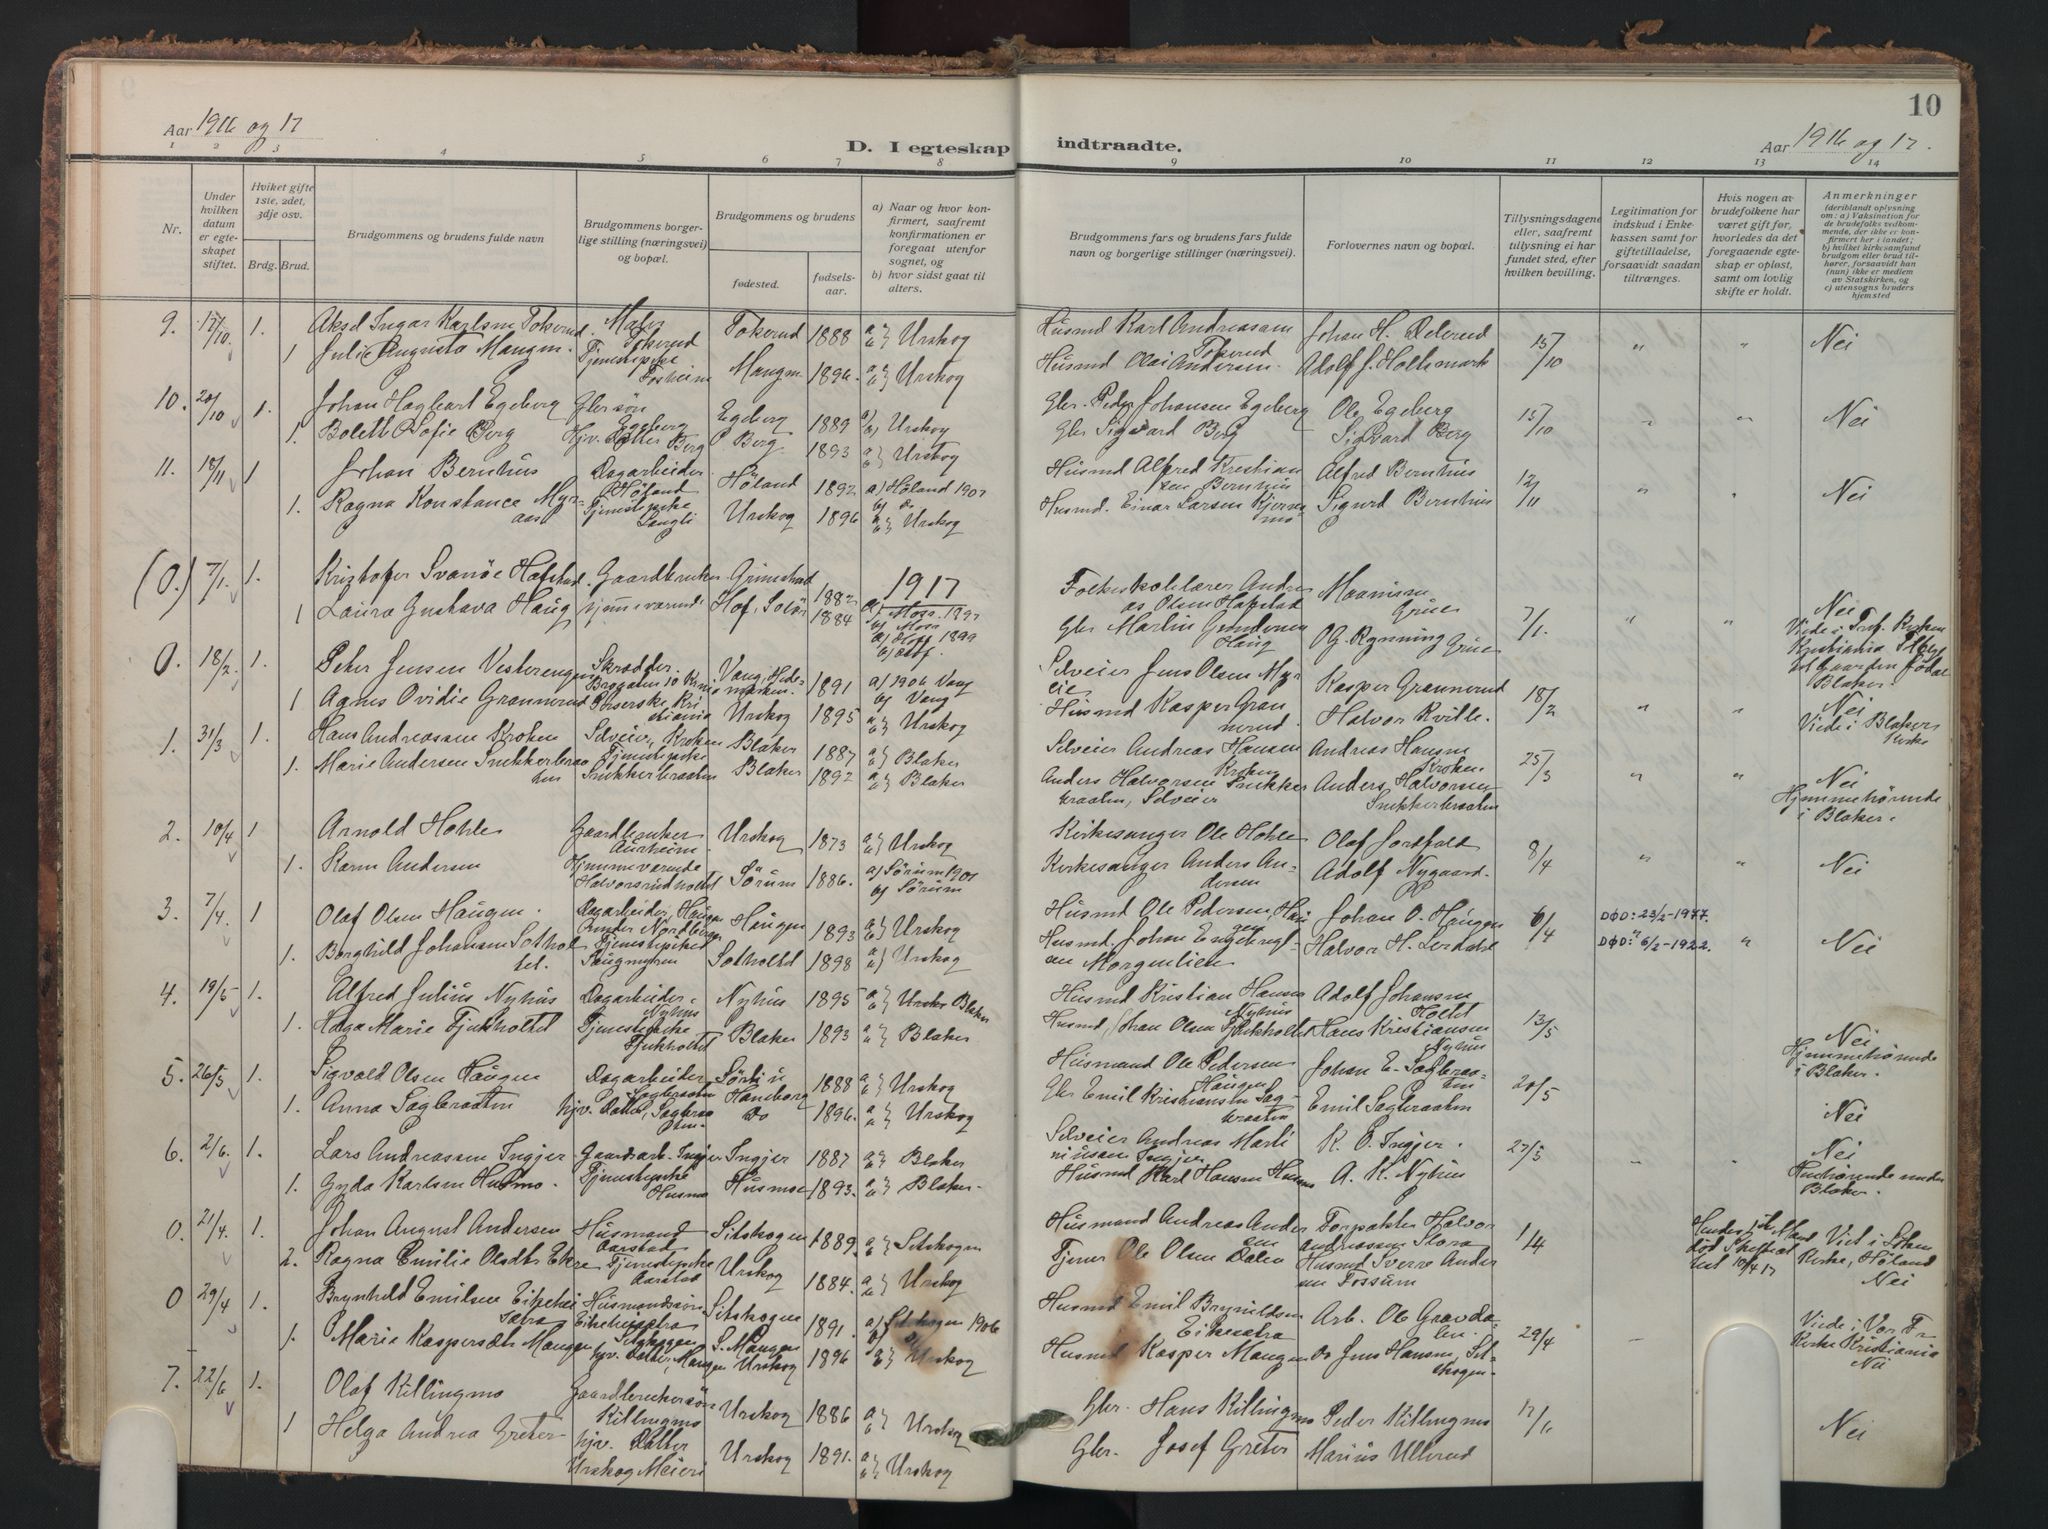 10
Aar 1916 og 17
D. I egteskap indtraadte.
Aar 1916 og 17.
1 2 3 4 5 6 7 8 9 10 11 12 13 14
Nr.
Under hvilken datum er egteskapet stiftet.
Hviket gifte 1ste, 2det, 3dje osv.
Brdg. Brud.
Brudgommens og brudens fulde navn
Brudgommens borgerlige stilling (næringsvei) og bopæl.
Brudgommens og brudens
fødested.
fødselsaar.
a) Naar og hvor konfirmert, saafremt konfirmationen er foregaat utenfor sognet, og
b) hvor sidst gaat til alters.
Brudgommens fars og brudens fars fulde navn og borgerlige stillinger (næringsvei).
Forlovernes navn og bopæl.
Tillysningsdagene eller, saafremt tillysning ei har fundet sted, efter hvilken bevilling.
Legitimation for indskud i Enkekassen samt for giftetilladelse, forsaavidt saadan tiltrænges.
Hvis nogen av brudefolkene har været gift før, hvorledes da det foregaaende egteskap er opløst, samt om lovlig skifte er holdt.
Anmerkninger
(deriblandt oplysning om: a) Vaksination for de brudefolks vedkommende, der ikke er konfirmert her i landet; b) hvilket kirkesamfund brudgom eller brud tilhører, forsaavidt han (hun) ikke er medlem av Statskirken, og c) utensogns bruders hjemsted
9. 1. Aksel Ingar Karlsen Tokerud Maler Tokerud Tokerud 1888 a) b) Urskog Husmd Karl Andreassen Tokerud Johan H. Delerud 15/10 " " Nei
1 Julie Augusta Mangen. Tjenestepike Fosheim Mangen 1896. a) b) Urskog Husmd Olai Andersen. Adolf J. Holtsmark
10. 20/10 1. Johan Hagbart Egeberg Gbr søn Egeberg Egeberg 1889 a) b) Urskog Gbr. Peder Johansen Egeberg Ole Egeberg 15/10 " " Nei
1. Bolette Sofie Berg Hjv. Datter Berg Berg 1893 a) b) Urskog Gbr Sigvard Berg Sigvard Berg
11. 18/11 1 Johan Bernhus Dagarbeider Høland Høland 1892 a) Høland 1907 b) do Husmd Alfred Kristiansen Bernhus Alfred Bernhus 12/11 " " Nei
1. Ragna Konstance Myraas Tjenestepike Langli Urskog 1896 a) b) Urskog Husmd. Einar Larsen Kjernsmo Sigurd Bernhus
1917
(0.) 7/1. 1. Kristofer Svanøe Hafstad Gaardbruker Grimstad 1882 a) Moss 1897 b) Moss Folkeskolelærer Andreas Olsen Hafstad Grue 7/1. " " Nei
1 Laura Gustava Haug Hjemmeværende Hof, Solør 1884 a) Hof 1899 b) Hof. Gbr Martin Haug O.G. Rynning Grue
0. 18/2 1. Peter Jensen Vesterengen Skrædder. Brogaten 10 Kria Vang, Hedemarken. 1891 a) 1906 Vang b) Vang Selveier Jens Olsen Kasper Grønnerud 18/2 " " Nei
1 Agnes Ovidie Grønnerud Kristiania Urskog 1895 a) b) Urskog Husmd Kasper Grønnerud Halvor Kville.
1. 31/3 1. Hans Andreassen Kroken Selveier, Kroken Blaker 1887 a) b) Blaker Selveier Andreas Hansen Kroken Andreas Hansen Kroken 25/3 " " Viede i Blaker Kirke Nei
1. Marie Andersen Snekkerbraaten Tjenestepike Snekkerbraaten Blaker 1892 a) b) Blaker Anders Halvorsen Snekkerbraaten, Selveier Anders Halvorsen Snekkerbraaten Hjemmehørende i Blaker.
2. 10/4 1 Arnold Hohle Gaardbruker Aurheim Urskog 1873 a) b) Urskog Kirkesanger Ole Hohle Olaf Jordfald 8/4 " " Nei
1. Karen Andersen Hjemmeværende Halvorsrudholtet Sørum 1886. a) Sørum 1901 b) Sørum Kirkesanger Anders Andersen Adolf Nygaard.
3. 7/4. 1 Olaf Olsen Haugen. Dagarbeider, Haugen under Nordberg Haugen 1893 a) b) Urskog Husmd Ole Pedersen Haugen Johan O. Haugen 6/4 DØD: 23/2-1977. " Nei
1. Borghild Johansen Sotholtet. Tjenestepike Sotholtet 1898 a) b) Urskog Husmd. Johan Morgenlien Halvor H. Lierdahl DØD: 6/2-1922.
4. 19/5 1. Alfred Julius Nyhus Dagarbeider Nyhus Nyhus 1895 a) b) Urskog Blaker Husmd Kristian Hansen Nyhus Adolf Johansen Holtet 13/5 Nei
1. Haga Marie Tjukholtet Tjenestepike Tjukholtet Blaker 1893 a) b) Blaker Husmd. Johan Olsen Tjukholtet Hans Kristiansen Nyhus Hjemmehørende i Blaker.
5. 26/5 1. Sigvald Olsen Haugen Dagarbeider Sagbraaten Haneborg 1888 a) b) Urskog Husmand Ole Pedersen Haugen Johan E. Sagbraaten 20/5
1. Anna Sagbraaten hjv. Datter, Sagbraaten Do 1896. a) b) Urskog Gbr Emil Kristiansen Sagbraaten Emil Sagbraaten Nei
6. 2/6. 1. Lars Andreassen Ingjer Gaardarb. Ingjer Ingjer 1887 a) b) Blaker Selveier Andreas Martiniussen Ingjer K. O. Ingjer. 27/5 " " Nei
1. Gyda Karlsen Husmo. Tjenestepike Husmo Husmoe 1893. a) b) Blaker Husmd Karl Hansen Husmo A. K. Nyhus Blaker.
0. 21/4. 1. Johan August Andersen Husmand Aarstad Sitskogen 1889. a) b) Sitskogen Husmand Andreas Andersen Halvor Andreassen Slora 1/4 Viet i Kirke, Høland
2. Ragna Emilie Olsdtr Ekre Tjenestepike Aarstad Urskog 1884. a) b) Urskog Tjener Ole Olsen Dalen Husmd Sverre Andersen Fossum Nei
0 29/4 1. Brynhild Emilsen Eikehei Husmandssøn Sitskogen 1891. a) Sitskogen 1906 b) do Husmd Emil Brynildsen Arb. Ole Gravdalen. 29/4 " Viede i Vor Fr. Kirke Kristiania
1. Marie Kaspersdt Mangen hjv. Datter, Mangen S. Mangen Urskog 1896 a) b) Urskog Husmd Kasper Mangen do Jens Hansen, Setskogen. Nei
7. 22/6 1. Olaf Killingmo Gaardbrukersøn Killingmo Urskog 1886 a) b) Urskog Gbr. Hans Killingmo Peder Killingmo 17/6 Nei
1 Helga Andrea Greter hjv. Datter Urskog Meieri Urskog 1891. a) b) Urskog Gbr. Josef Greter Marius Ullerud